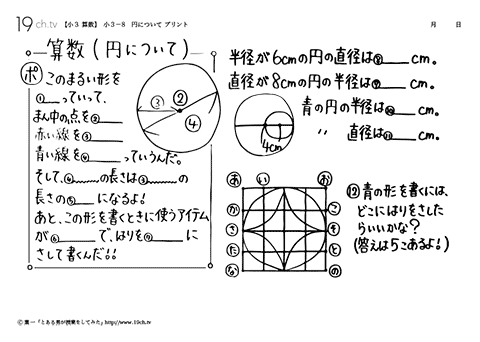 19ch.tv 【小3 算数】 小3－8 円について プリント 月 日
算数(円について)
ポ このまるい形を
①＿＿っていって、
まん中の点を②＿＿
赤い線を③＿＿
青い線を④＿＿っていうんだ。
そして、④＿＿の長さは③＿＿の
長さの⑤＿＿になるよ!
あと、この形を書くときに使うアイテム
が⑥＿＿で、はりを⑦＿＿に
さして書くんだ!!
③ ② ④
半径が6cmの円の直径は⑧＿＿cm。
直径が8cmの円の半径は⑨＿＿cm。
青の円の半径は⑩＿＿cm。
〃 直径は⑪＿＿cm。
4cm
あ い お
か こ
さ そ
た と
な の
⑫ 青の形を書くには、
どこにはりをさした
らいいかな?
(答えは5こあるよ!)
ⓒ 葉一「とある男が授業をしてみた」http://www.19ch.tv